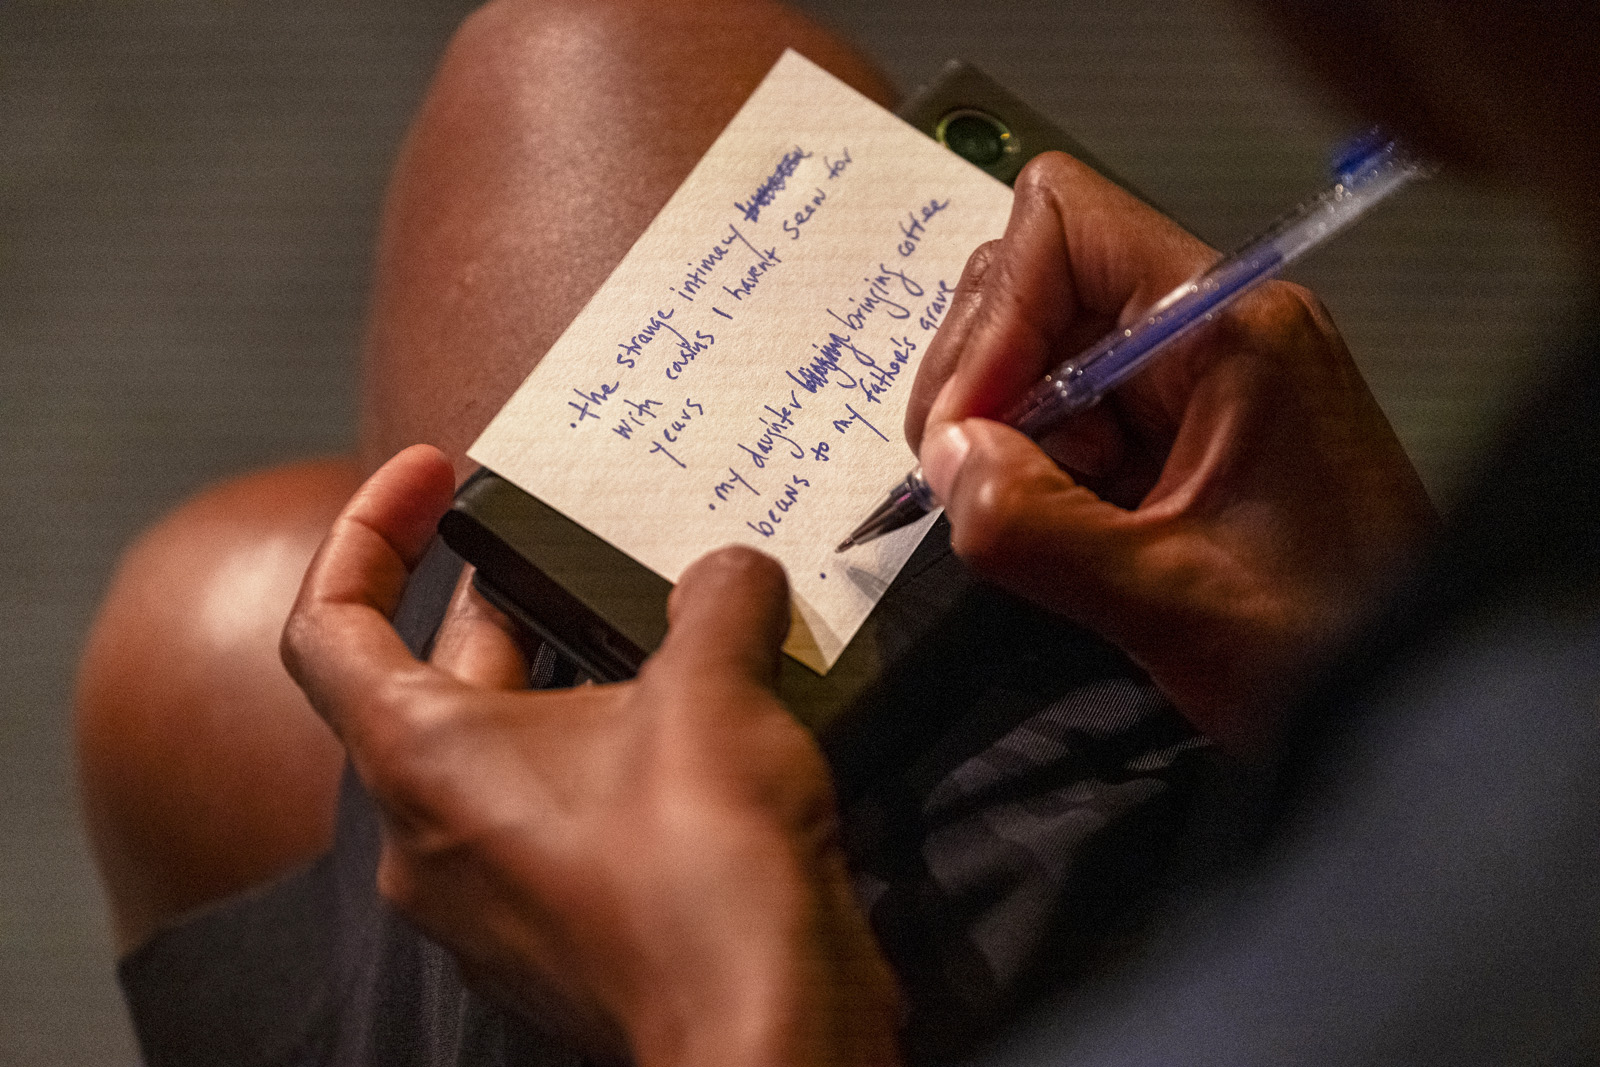 · the strange intimacy
with cousins I haven't seen for
years
· my daughter bringing coffee
beans to my father's grave
·